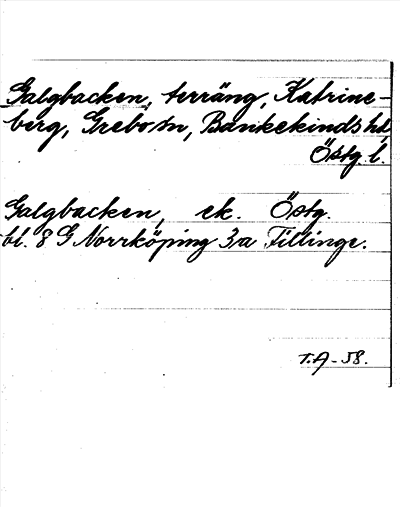 Galgbacken, terräng, Katrine-
berg, Grebo sn, Bankekinds hd,
Östg. l.
Galgbacken, ek. Östg.
bl. 8 G Norrköping 3a Tillinge.
T.A-58.